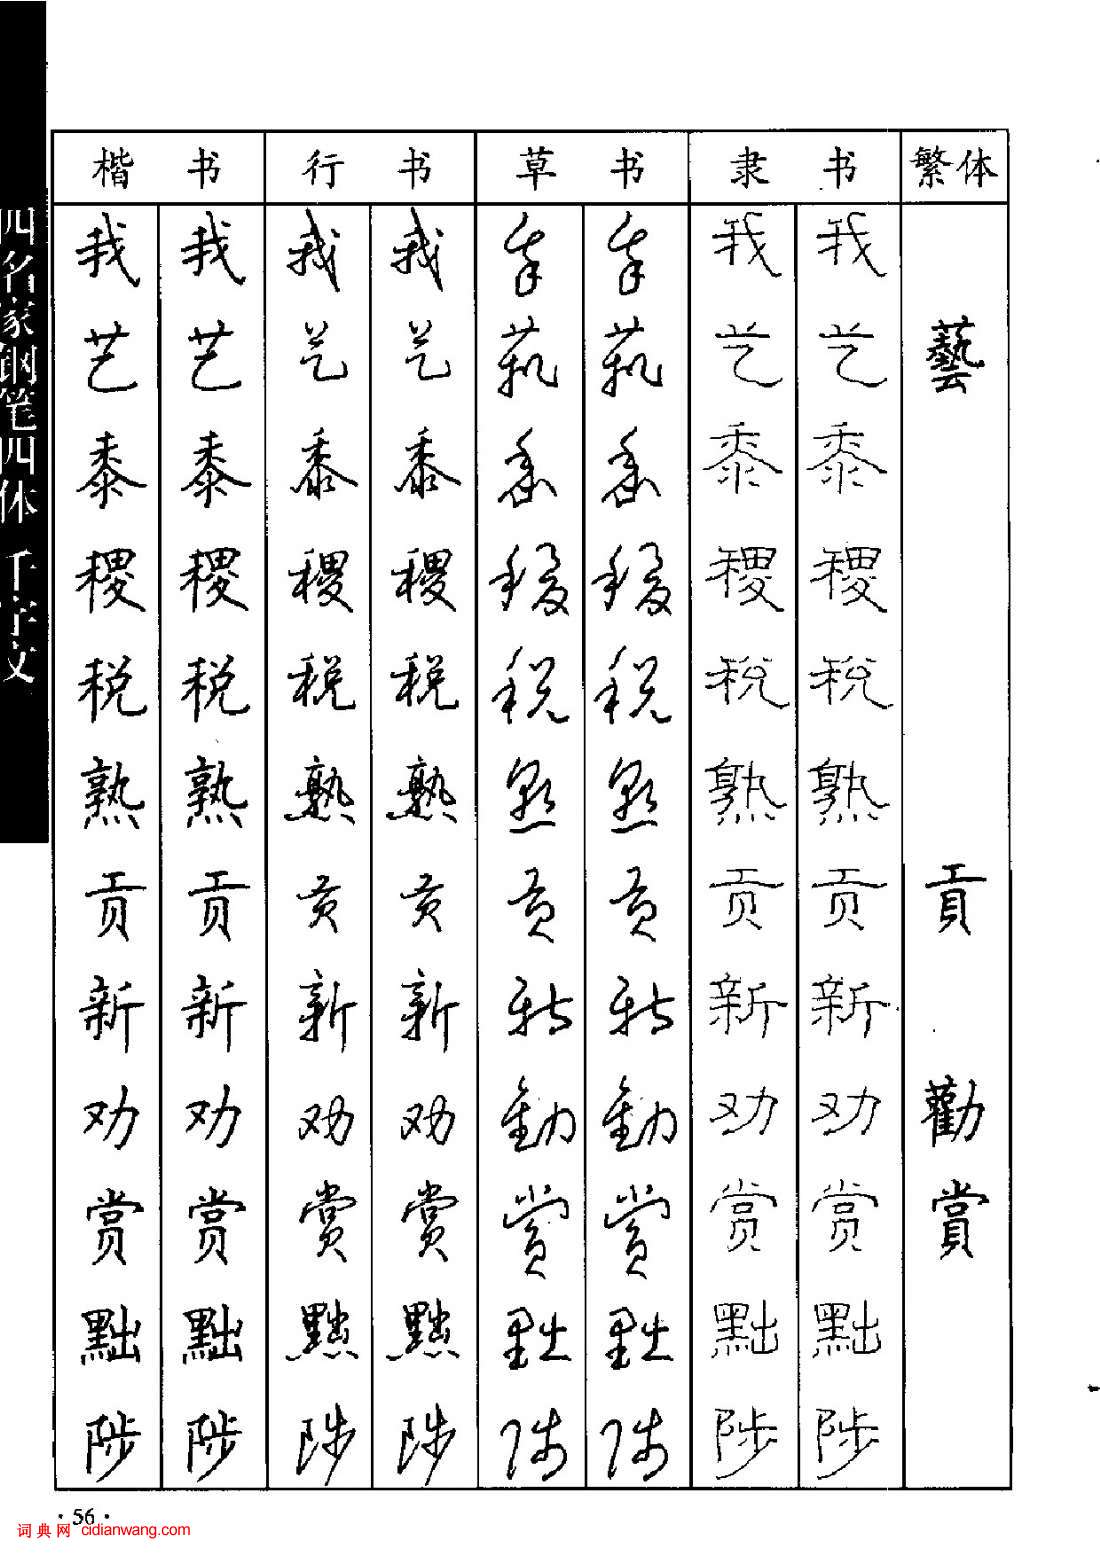 四名家钢笔四体 千字文
楷 书 行 书 草 书 隶 书 繁体
我 我 我 我 我 我 我 我
艺 艺 艺 艺 艺 艺 艺 艺 藝
黍 黍 黍 黍 黍 黍 黍 黍
稷 稷 稷 稷 稷 稷 稷 稷
税 税 税 税 税 税 税 税
熟 熟 熟 熟 熟 熟 熟 熟
贡 贡 贡 贡 贡 贡 贡 贡 貢
新 新 新 新 新 新 新 新
劝 劝 劝 劝 勧 勧 劝 劝 勸
赏 赏 赏 赏 赏 赏 赏 赏 賞
黜 黜 黜 黜 黜 黜 黜 黜
陟 陟 陟 陟 陟 陟 陟 陟
· 56 ·
词典网 cidianwang.com